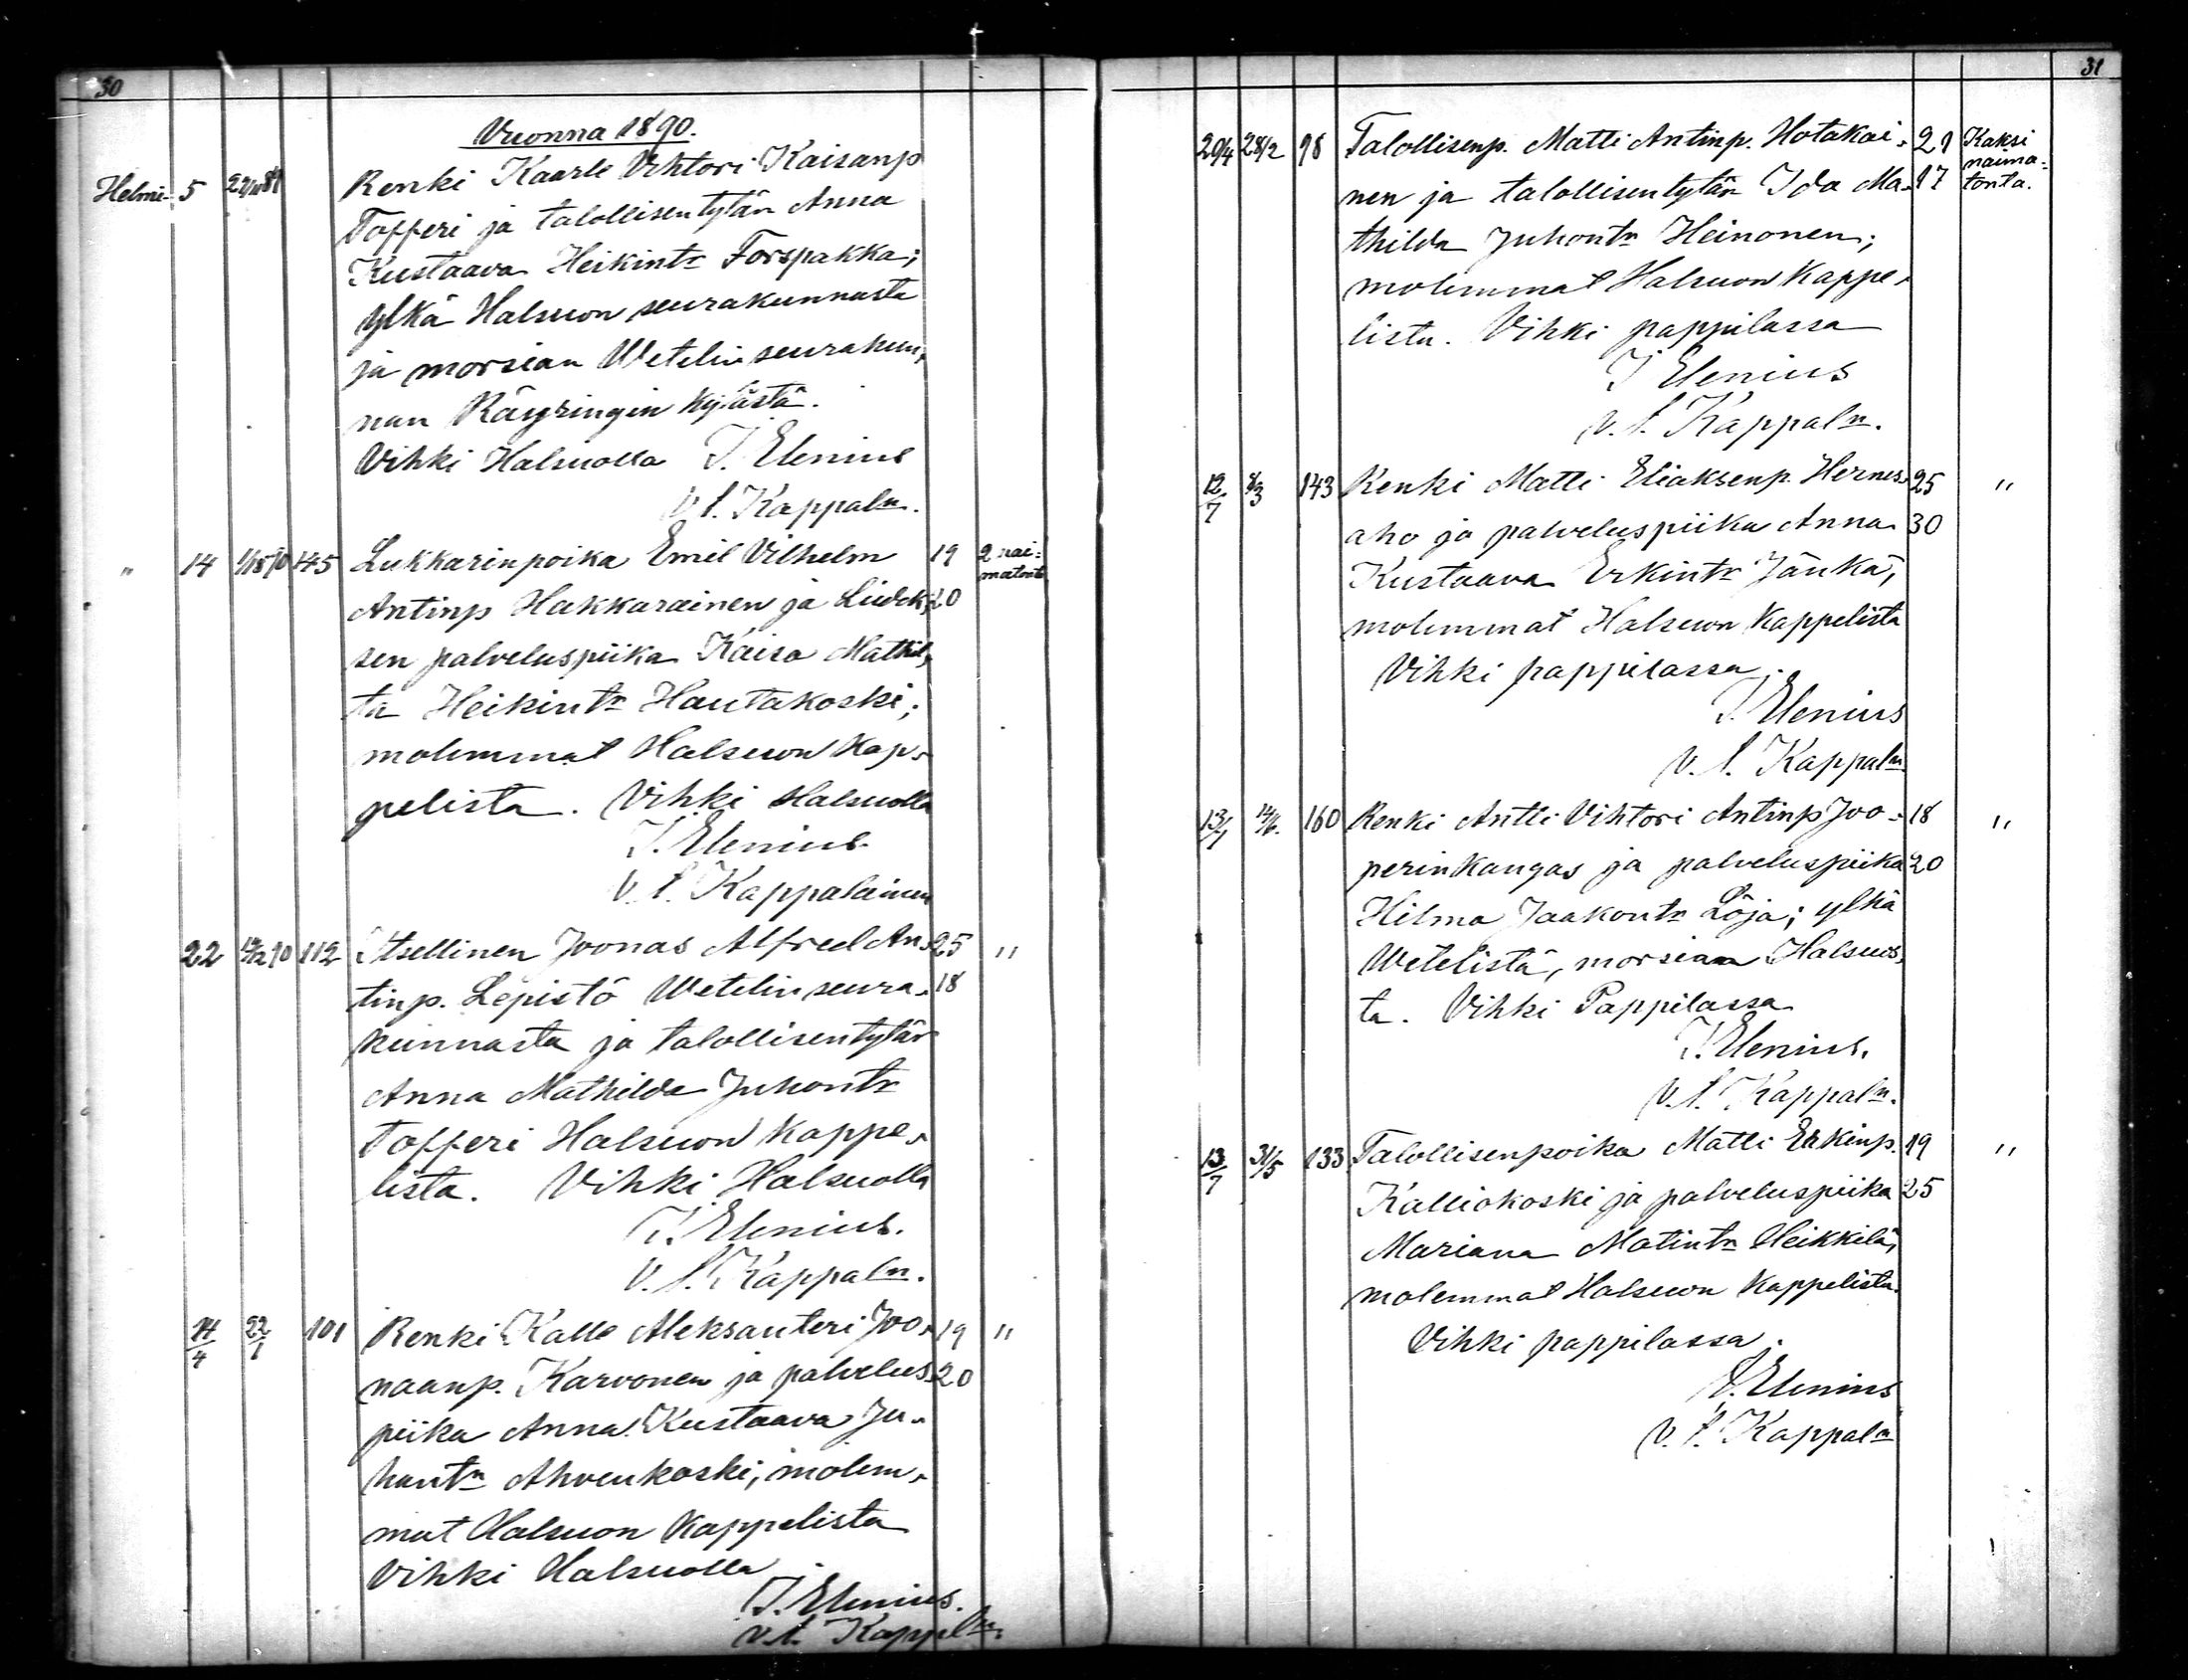 30
Vuonna 1890.
Helmi- 5 Renki Kaarle Vihtori Kaisanp
Tofferi ja talollisentytär Anna
Kustaava Heikintr Forspakka;
ylkä Halsuon seurakunnasta
ja morsian Wetelin seurakun-
nan Räyringin kylästä.
Vihki Halsuolla I. Elenius
v. t. Kappaln.
" 14 145 Lukkarinpoika Emil Vilhelm 19 2 nai-
matonta
Antinp Hakkarainen ja 20
sen palveluspiika Kaisa Mathil-
ta Heikintr Hautakoski;
molemmat Halsuon Kap-
pelista. Vihki Halsuolla
I. Elenius
v. t. Kappalainen
22 112 Itsellinen Joonas Alfred An- 25 "
tinp. Lepistö Wetelin seura- 18
kunnasta ja talollisentytär
Anna Mathilda Juhontr
Tofferi Halsuon Kappe-
lista. Vihki Halsuolla
I. Elenius.
v. t. Kappaln.
14/4 22/1 101 Renki Kalle Aleksanteri Joo- 19 "
naanp. Karvonen ja palvelus- 20
piika Anna Kustaava Ju-
hontr Ahvenkoski; molem-
mat Halsuon Kappelista
Vihki Halsuolla
I. Elenius.
v. t. Kappaln.
31
20/4 28/2 98 Talollisenp. Matti Antinp. Hotakai- 21 Kaksi
naima-
nen ja talollisentytär Ida Ma- 17 tonta.
thilda Juhontr Heinonen;
molemmat Halsuon Kappe-
lista. Vihki pappilassa
I Elenius
v. t. Kappaln.
12/7 8/3 143 Renki Matti Eliaksenp. Hernes- 25 "
aho ja palveluspiika Anna 30
Kustaava Erkintr Jänkä;
molemmat Halsuon Kappelista
Vihki pappilassa.
I. Elenius
v. t. Kappaln
13/7 14/6 160 Renki Antti Vihtori Antinp Joo- 18 "
perinkangas ja palveluspiika 20
Hilma Jaakontr Löja; ylkä
Wetelistä, morsian Halsuos-
ta. Vihki Pappilassa
I. Elenius.
v. t. Kappaln.
13/7 31/5 133 Talollisenpoika Matti Erkinp. 19 "
Kalliokoski ja palveluspiika 25
Mariana Matintr Heikkilä;
molemmat Halsuon Kappelista.
Vihki pappilassa.
I. Elenius
v. t. Kappaln